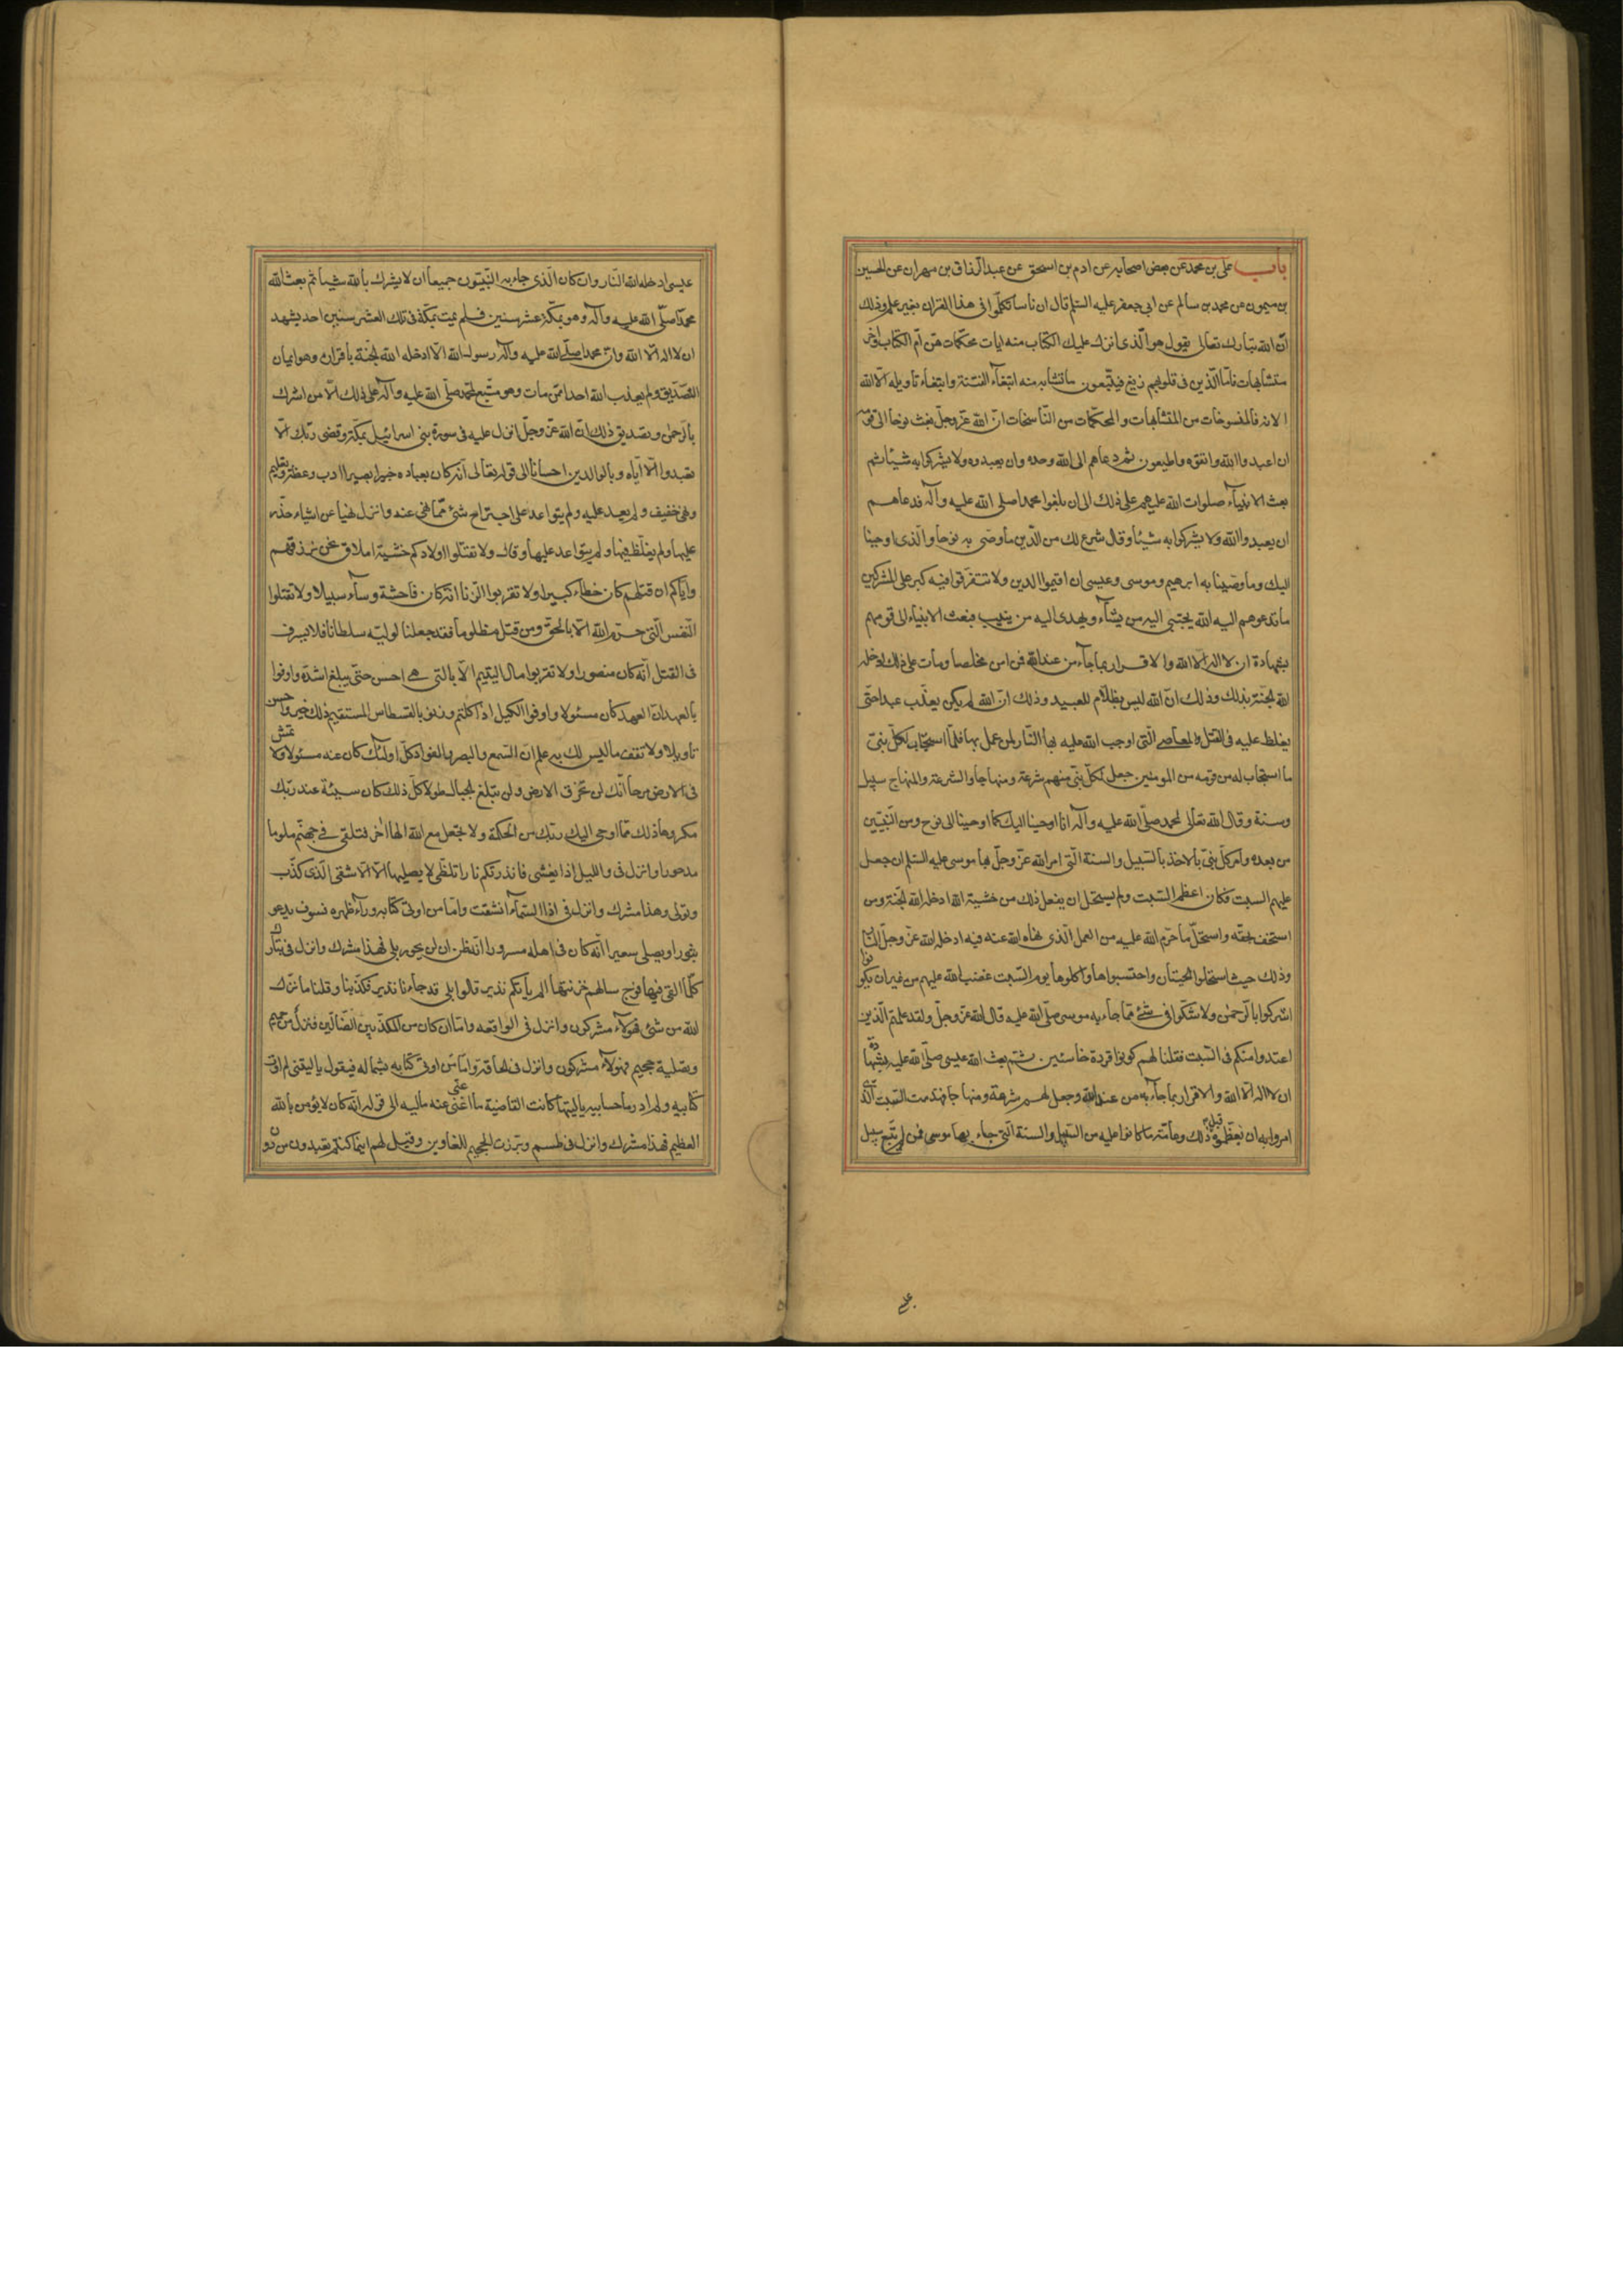 باب علی بن محمد عن بعض اصحابه عن ادم بن اسحق عن عبد الرزاق بن مهران عن الحسین
بن میمون عن محمد بن سالم عن ابی جعفر علیه السلم قال ان ناسا تکلموا فی هذا القران بغیر علم وذلك
انّ الله تبارك وتعالی یقول هو الّذی انزل علیك الکتاب منه ایات محکمات هنّ امّ الکتاب واخر
متشابهات فامّا الّذین فی قلوبهم زیغ فیتّبعون ما تشابه منه ابتغآء الفتنة وابتغاء تاویله وما یعلم تاویله الّا الله
الایة فالمنسوخات من المتشابهات والمحکمات من النّاسخات انّ الله عزّ وجلّ بعث نوحا الی قومه
ان اعبدوا الله واتقوه واطیعون ثم دعاهم الی الله وحده وان یعبدوه ولا یشرکوا به شیئا ثم
بعث الانبیآء صلوات الله علیهم علی ذلك الی ان بلغوا محمدا صلی الله علیه وآله فدعاهم
ان یعبدوا الله ولا یشرکوا به شیئا وقال شرع لك من الدّین ما وصّی به نوحا والّذی اوحینا
الیك وما وصّینا به ابرهیم وموسی وعیسی ان اقیموا الدین ولا تتفرّقوا فیه کبر علی المشرکین
ما تدعوهم الیه الله یجتبی الیه من یشآء ویهدی الیه من ینیب فبعث الانبیاء الی قومهم
بشهادة ان لا اله الا الله والاقرار بما جآء من عند الله فمن امن مخلصا ومات علی ذلك ادخله
الله الجنّة بذلك وذلك انّ الله لیس بظلّام للعبید وذلك انّ الله لم یکن یعذّب عبدا حتّی
یغلظ علیه فی القتل والمعاصی الّتی اوجب الله علیه بها النّار لمن عمل بها فلمّا استجاب لکلّ نبیّ
ما استجاب له من قومه من المومنین جعل لکلّ نبیّ منهم شرعة ومنهاجا والشرعة والمنهاج سبیل
وسنة وقال الله تعالی لمحمد صلّی الله علیه وآله انا اوحینا الیك کما اوحینا الی نوح ومن النّبیّین
من بعده وامر کلّ نبیّ بالاخذ بالسّبیل والسنة الّتی امر الله عزّ وجلّ بها موسی علیه السلم ان جعل
علیهم السبت فکان اعظم السّبت ولم یستحلّ ان یفعل ذلك من خشیة الله ادخله الله الجنّة ومن
استخفّ بحقّه واستحلّ ما حرّم الله علیه من العمل الّذی نهاه الله عنه فیه ادخله الله عزّ وجلّ النّار
وذلك حیث استحلّوا الحیتان واحتسبوها واکلوها یوم السّبت غضب الله علیهم من غیر ان یکونوا
اشرکوا بالرّحمن ولا شکّوا فی شیء ممّا جاء به موسی صلّی الله علیه قال الله عزّ وجلّ ولقد علمتم الّذین
اعتدوا منکم فی السّبت فقلنا لهم کونوا قردة خاسئین ثم بعث الله عیسی صلّی الله علیه بشهادة
ان لا اله الّا الله والاقرار بما جآء به من عند الله وجعل لهم شرعة ومنهاجا فهدمت السّبت الّذی
امروا به ان یعظّموه قبل ذلك وعامّة ما کانوا علیه من السّبیل والسنة الّتی جاء بها موسی فمن لم یتّبع سبیل
عیسی ادخله الله النّار وان کان الّذی جاء به النّبیّون جمیعا ان لا یشرك بالله شیئا ثمّ بعث الله
محمّدا صلّی الله علیه وآله وهو بمکّة عشر سنین فلم یمت بمکّة فی تلك العشر سنین احد یشهد
ان لا اله الّا الله وانّ محمدا صلّی الله علیه وآله رسول الله الّا ادخله الله الجنّة باقراره وهو ایمان
التّصدیق ولم یعذّب الله احدا ممّن مات وهو متّبع لمحمد صلّی الله علیه وآله علی ذلك الّا من اشرك
بالرّحمن وتصدیق ذلك انّ الله عزّ وجلّ انزل علیه فی سورة بنی اسرائیل بمکّة وقضی ربّك الّا
تعبدوا الّا ایّاه وبالوالدین احسانا الی قوله تعالی انّه کان بعباده خبیرا بصیرا ادب وعظة وتعلیم
ونهی خفیف ولم یعد علیه ولم یتواعد علی اجتراح شیء ممّا نهی عنه وانزل نهیا عن اشیاء حذّر
علیها ولم یغلّظ فیها ولم یتواعد علیها وقال ولا تقتلوا اولادکم خشیة املاق نحن نرزقهم
وایّاکم ان قتلهم کان خطاء کبیرا ولا تقربوا الزّنا انّه کان فاحشة وسآء سبیلا ولا تقتلوا
النّفس الّتی حرّم الله الّا بالحقّ ومن قتل مظلوما فقد جعلنا لولیّه سلطانا فلا یسرف
فی القتل انّه کان منصورا ولا تقربوا مال الیتیم الّا بالتی هی احسن حتّی یبلغ اشدّه واوفوا
بالعهد انّ العهد کان مسئولا واوفوا الکیل اذا کلتم وزنوا بالقسطاس المستقیم ذلك خیر واحسن
تاویلا ولا تقف ما لیس لك به علم انّ السّمع والبصر والفؤاد کلّ اولئك کان عنه مسئولا ولا تمش
فی الارض مرحا انّك لن تخرق الارض ولن تبلغ الجبال طولا کلّ ذلك کان سیئة عند ربّك
مکروها ذلك ممّا اوحی الیك ربّك من الحکمة ولا تجعل مع الله الها اخر فتلقی فی جهنّم ملوما
مدحورا وانزل فی واللیل اذا یغشی فانذرتکم نارا تلظّی لا یصلیها الّا الاشقی الّذی کذّب
وتولی وهذا مشرك وانزل فی اذا السّمآء انشقت وامّا من اوتی کتابه ورآء ظهره فسوف یدعو
ثبورا ویصلی سعیرا انّه کان فی اهله مسرورا انّه ظن ان لن یحور بلی فهذا مشرك وانزل فی تبارك
کلّما القی فیها فوج سالهم خزنتها الم یاتکم نذیر قالوا بلی قد جاءنا نذیر فکذّبنا وقلنا ما نزّل
الله من شیء فهولاء مشرکون وانزل فی الواقعه وامّا ان کان من المکذّبین الضّالّین فنزل من حمیم
وتصلیة جحیم فهولاء مشرکون وانزل فی الحاقة وامّا من اوتی کتابه بشماله فیقول یا لیتنی لم اوت
کتابیه ولم ادر ما حسابیه یا لیتها کانت القاضیة ما اغنی عنی مالیه الی قوله انّه کان لا یؤمن بالله
العظیم فهذا مشرك وانزل فی طسم وبرزت الجحیم للغاوین وقیل لهم اینما کنتم تعبدون من دون